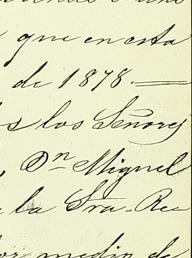 que en esta
de 1878.—
s los Señores
, Dn Miguel
la Sra. Re
por medio de